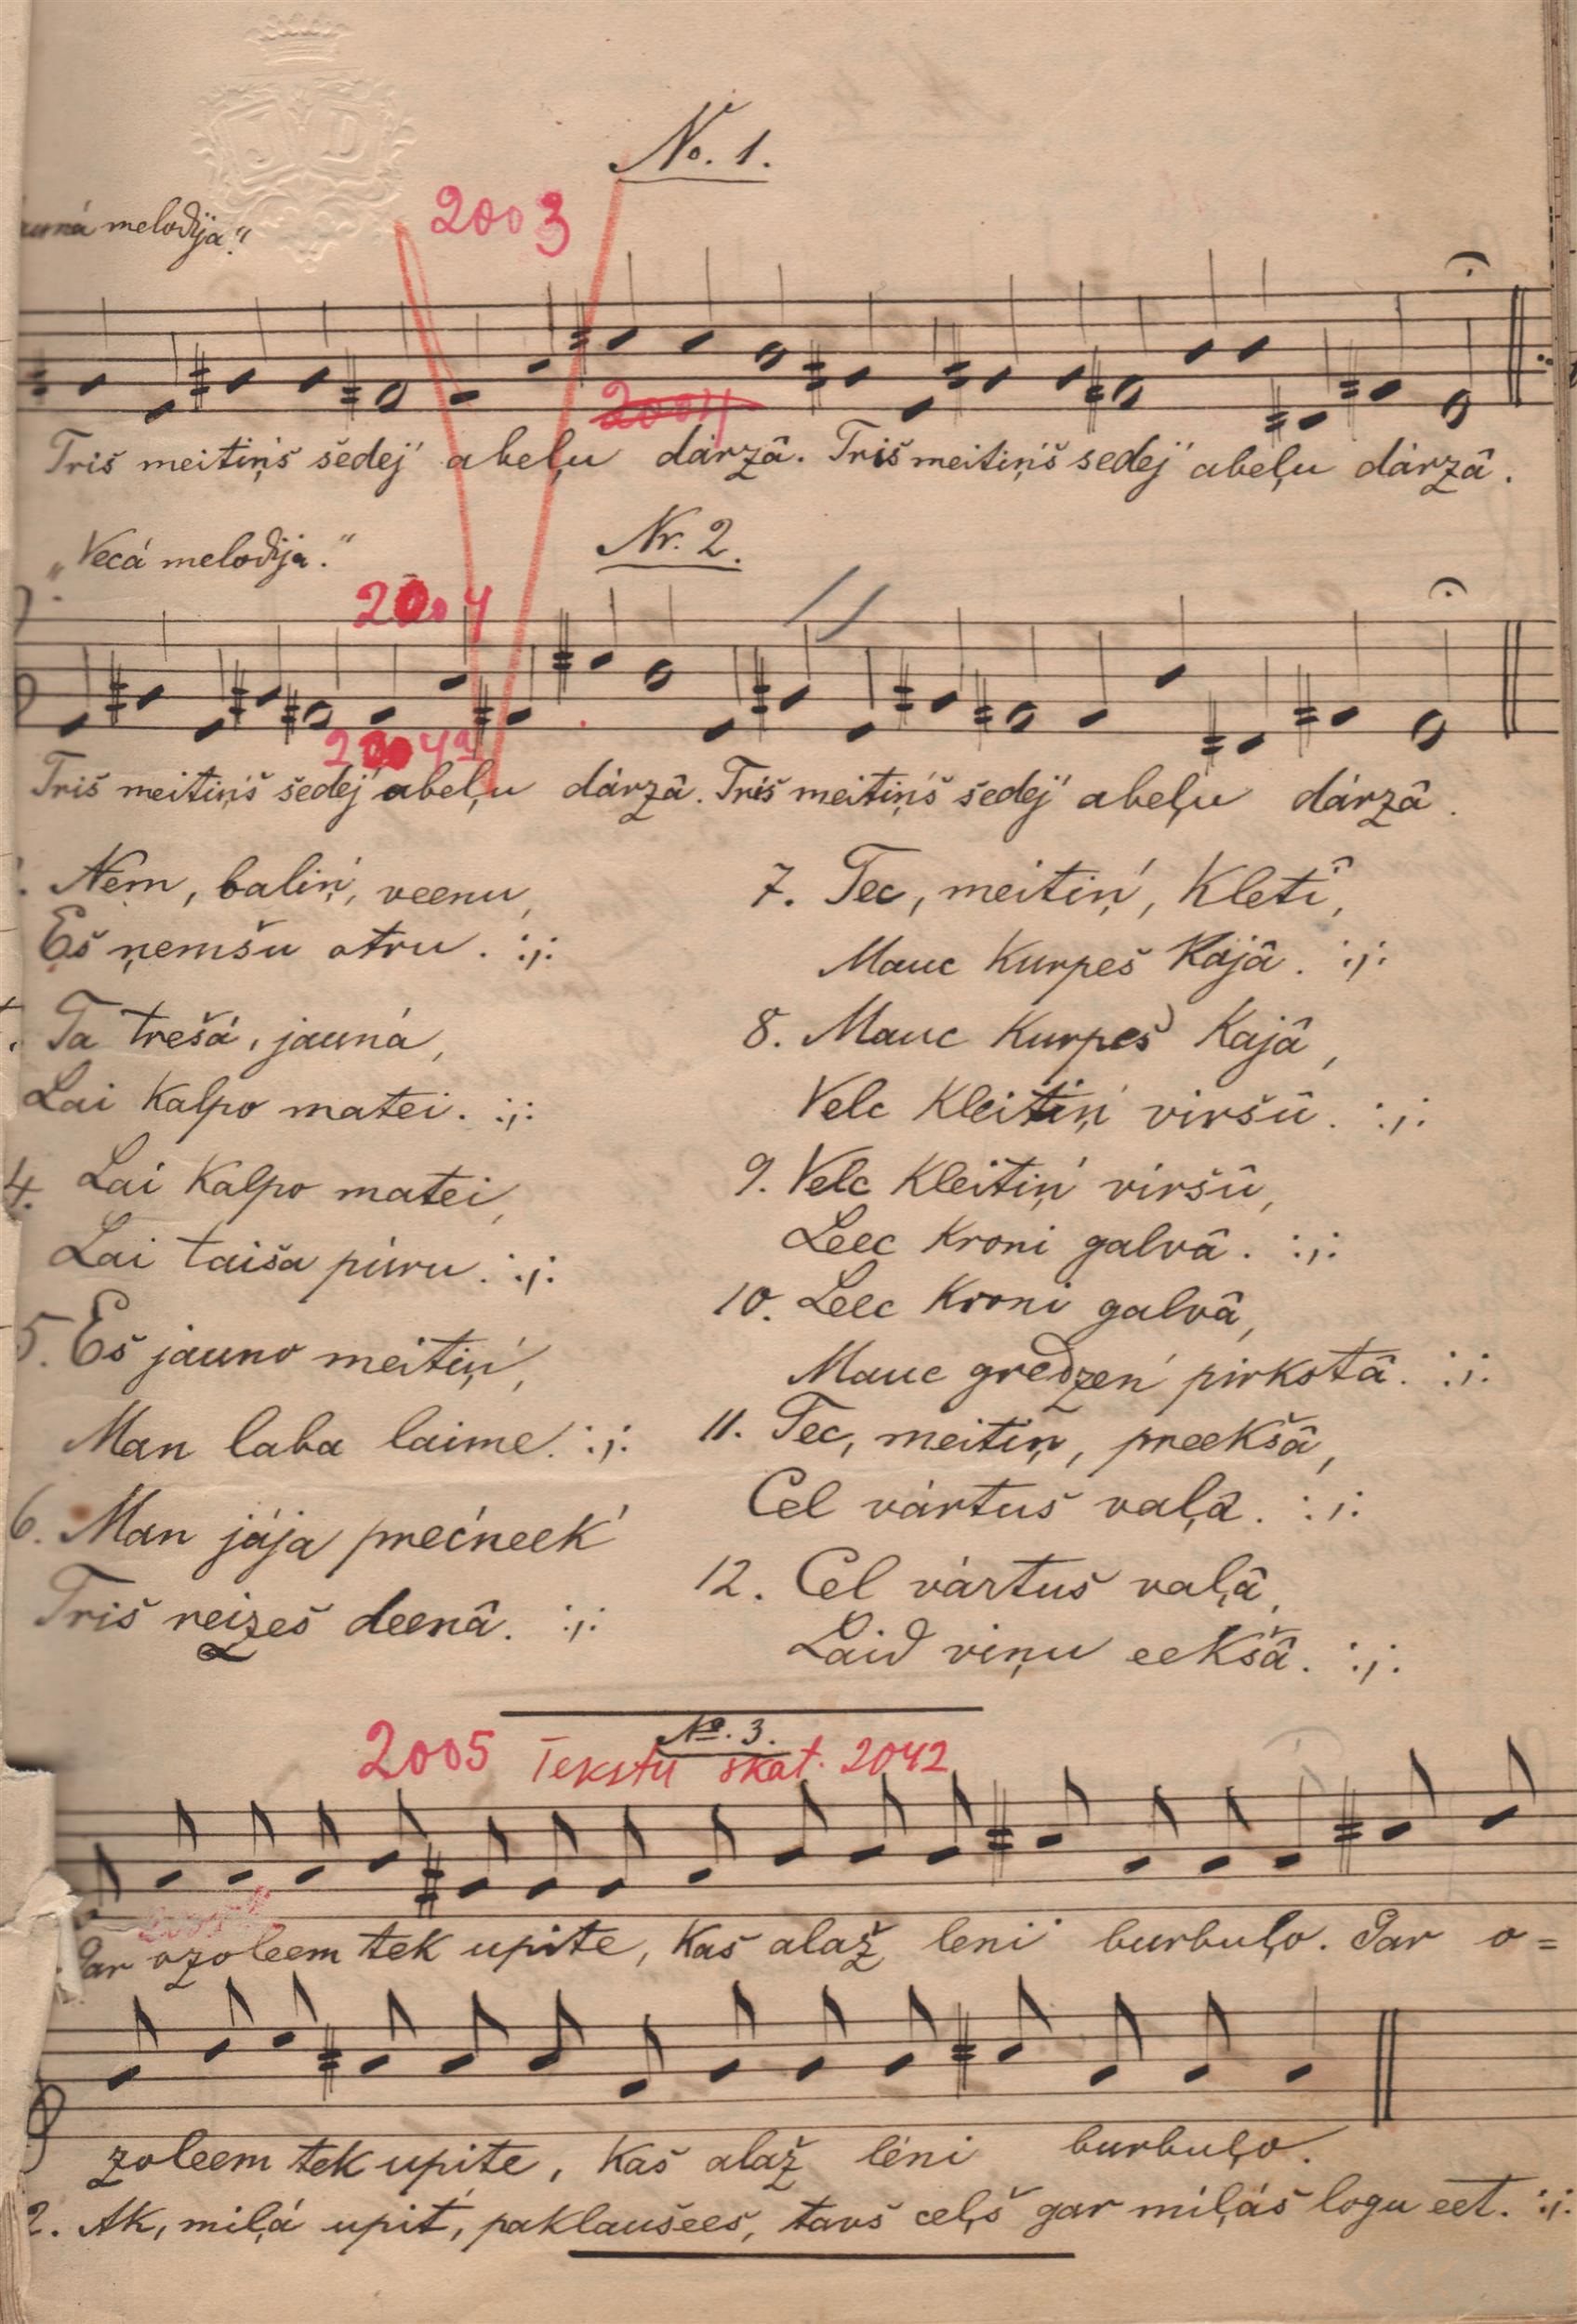 No. 1.
melodija."
2003
2004
Triš meitiņ́š šėdej' abeļu dárzâ. Triš meitiņ́š šėdej' abeļu dárzâ.
„Vecá melodija."
Nr. 2.
2004
Triš meitiņ́š šėdej' abeļu dárzâ. Triš meitiņ́š šėdej' abeļu dárzâ.
Ņem, baliņ́, veenu,
Eš ņemšu otru. :,:
Ta trešá, jauná,
Lai kalpo matei. :,:
4. Lai kalpo matei,
Lai taiša púru. :,:
5. Eš jauno meitiņ́,
Man laba laime. :,:
6. Man jája prećneek'
Triš reizeš deenâ. :,:
7. Tec, meitiņ́, kletî,
Mauc kurpeš kajâ. :,:
8. Mauc kurpeš kajâ,
Velc kleitiņ́ viršû. :,:
9. Velc kleitiņ́ viršû,
Leec kroni galvâ. :,:
10. Leec kroni galvâ,
Mauc gredzeń pirkstâ. :,:
11. Tec, meitiņ, preekšâ,
Cel vártuš vaļâ. :,:
12. Cel vártuš vaļâ,
Laid viņu eekšâ. :,:
No. 3.
2005 Tekstu skat. 2042
Gar ozoleem tek upite, kaš alaž leni burbuļo. Gar o=
zoleem tek upite, kaš alaž léni burbuļo.
2. Ak, miļá upit', paklaušeeš, tavš ceļš gar miļáš logu eet. :,: